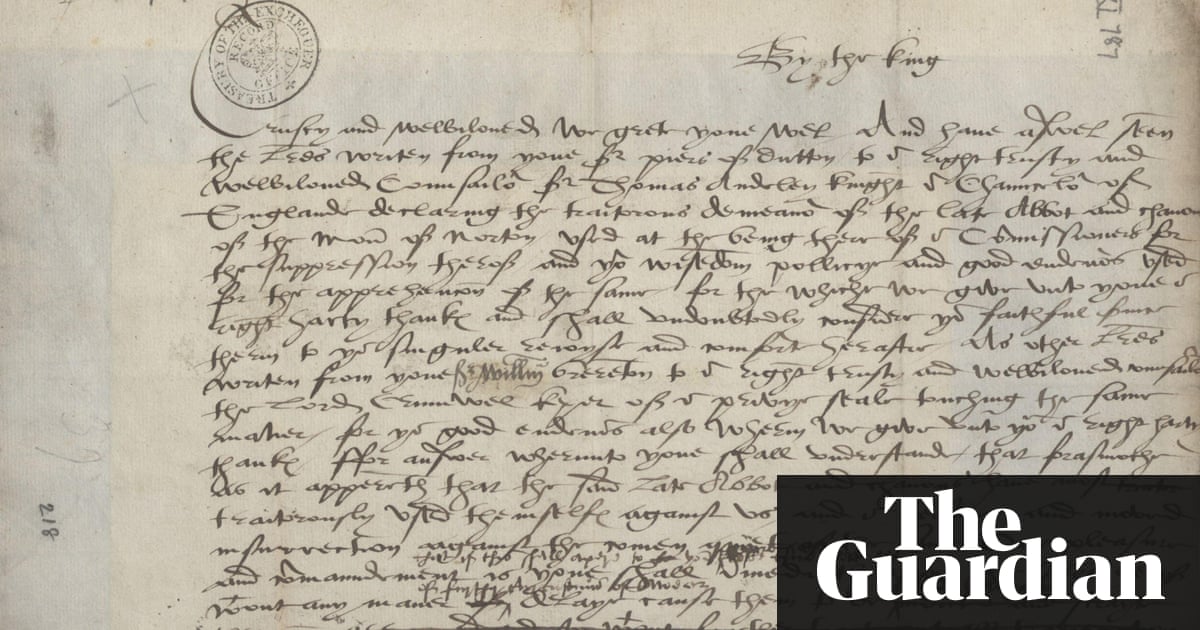 By the king
Trusty and welbiloved We grete youe wel And have aswel seen
the Lres writen from youe Sr piers of dutton to or right trusty and
welbiloved Counsailor Sr Thomas Audeley knight or Chauncelor of
Englande declaring the traitorous demeanor of the late Abbot and chanon
of the Mon of Norton used at the being there of or Comissioners for
the suppression therof and yor wisedom pollicye and good endevor used
for the apprehencon of the same for the whiche we give unto youe or
right harty thankes and shall undoubtedly considre yor faithful
therin to yor singuler and comfort herafter As other Lres
writen from youe Sr Willm brereton to or right trusty and welbiloved
the Lord Crumwel keper of or privye seale touching the same
matier for yor good endevor also wherin we give unto yo or right harty
thankes ffor answer wherunto youe shall understande that forasmoche
As it appereth that the said late Abbot
traitorously used themselfes against us
insurrection against the comen
and comaundement is youe shall
wout any maner delaye cause them
TREASURY OF THE EXCHEQUER
RECORD
787
218
The
Guardian